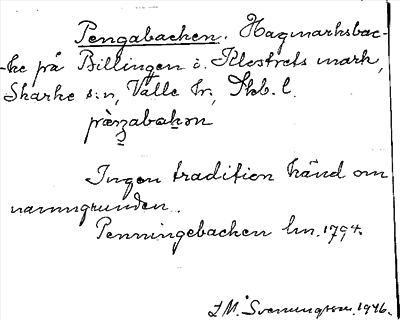 Pengabacken. Hagmarksbac-
ke på Billingen i. Klostrets mark,
Skarke s:n, Valle hr, Skb. l.
Ingen tradition känd om
namngrunden.
Penningebacken lm. 1794.
J M. Svenungsson. 1946.